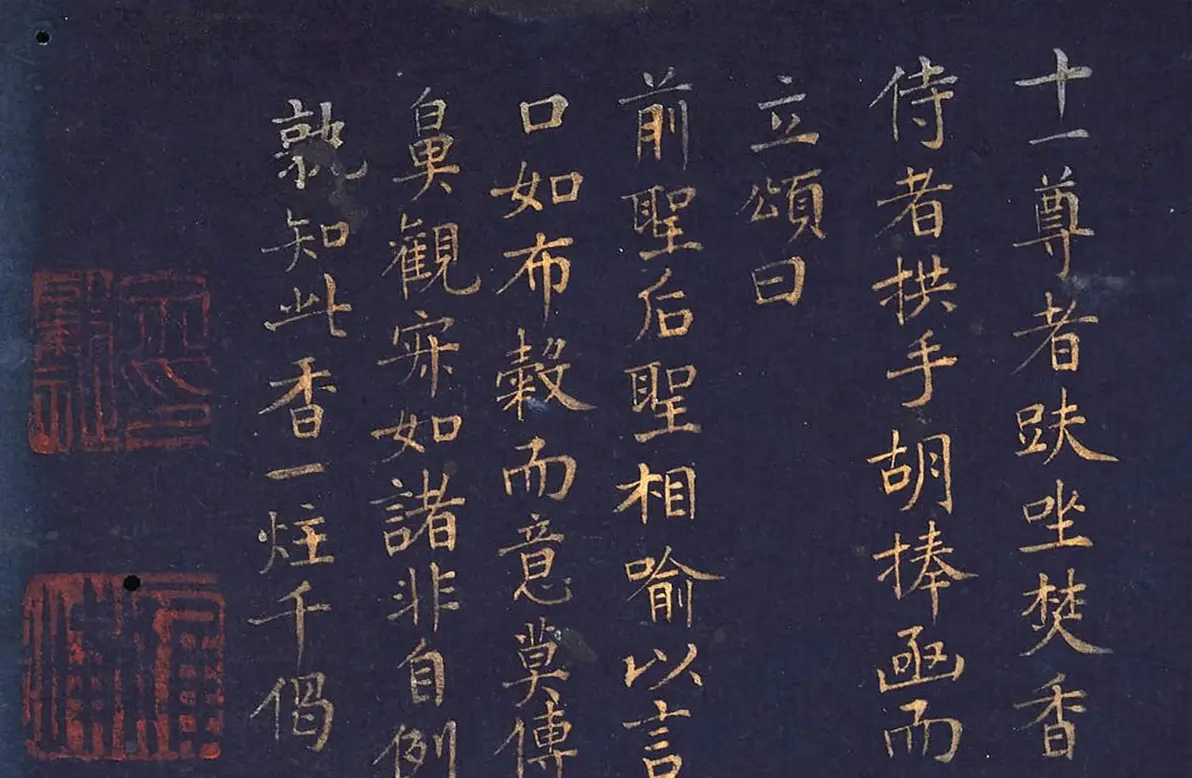 十一尊者趺坐焚香
侍者拱手胡捧函而
立頌曰
前聖后聖相喻以言
口如布穀而意莫傳
鼻觀寂如諸非自例
孰知此香一炷千偈